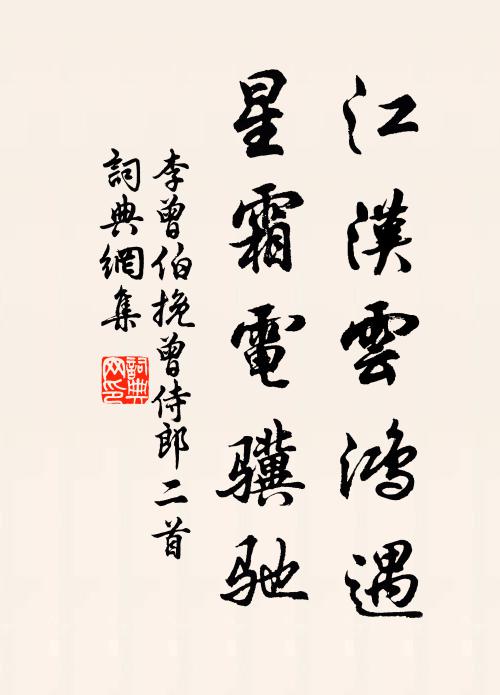 江漢雲鴻遇
星霜電驥馳
李曾伯挽曾侍郎二首
詞典網集
詞典网印